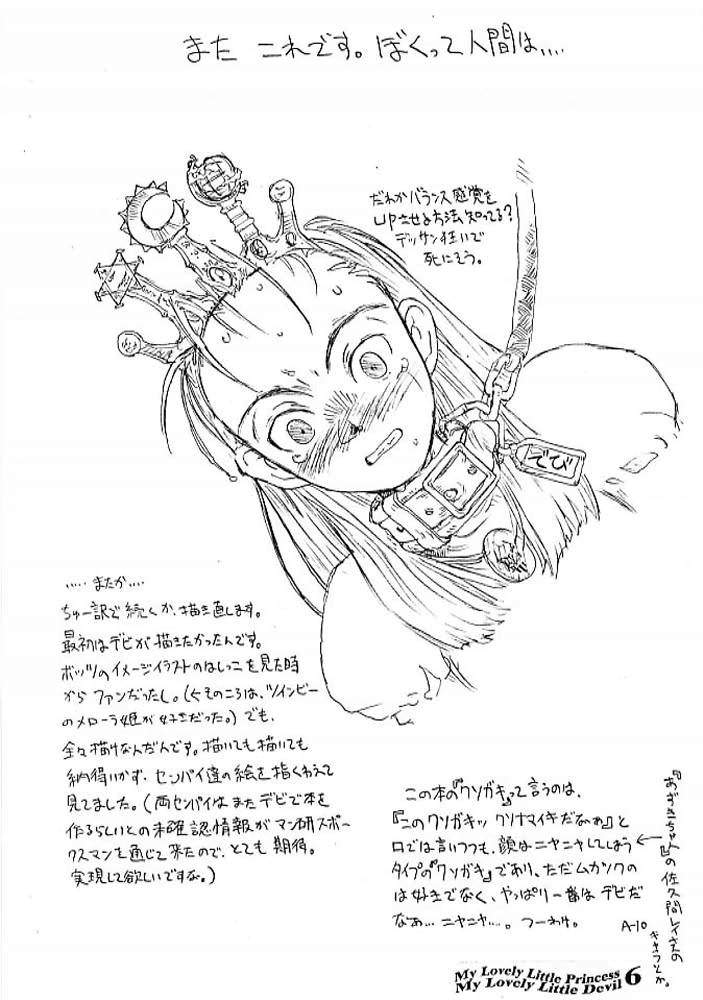 また これです。ぼくって人間は‥‥
だれかバランス感覚を
UPさせる方法知ってる?
デッサン狂いで
死にそう。
でび
‥‥‥またか‥‥
ちゅー訳で続くか、描き直します。
最初はデビが描きたかったんです。
ボッツのイメージイラストのはしっこを見た時
から ファンだったし。(そのころは、ツインビー
のメローラ姫が好きだった。)でも、
全々描けなんだんです。描いても描いても
納得いかず、センパイ達の絵を指くわえて
見てました。(両センパイは またデビで本を
作るらしいとの未確認情報がマン研スポー
クスマンを通じて来たので、とても期待。
実現して欲しいですな。)
この本の『クソガキ』って言うのは、
『このクソガキッ クソナマイキだなぁ』と
口では言いつつも、顔はニヤニヤしてしまう
タイプの『クソガキ』であり、ただムカツクの
は好きでなく、やっぱり一番は デビだ
なぁ‥‥ニヤニヤ‥‥。つーわけ。
A-10
『あずきちゃん』の佐久間レイさんの
とか。
My Lovely Little Princess
My Lovely Little Devil 6